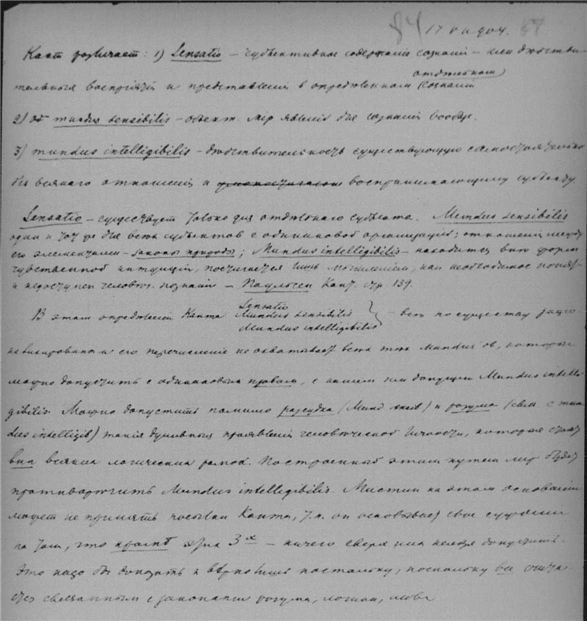 84 17 87
Кант различает: 1) Sensatio – субъективное содержание сознаний – или действи-
отдельном
тельныя восприятия и представления в определенном сознании
2) от mundus sensibilis – объект. мир явлений для сознаний вообще.
3) mundus intelligibilis – действительность существующую самостоятельно
без всякаго отношения к воспринимающему субъекту
Sensatio – существует только для отдельнаго субъекта. Mundus sensibilis
один и тот же для всех субъектов с одинаковой организацией: отношения между
его элементами – законы природы; Mundus intelligibilis – находится вне форм
чувственной интуиции, постигается лишь мышлением, как необходимое понят.
и недоступен человеч. познанию – Паульсен Кант. стр 139.
В этом определении Канта Sensatio Mundus sensibilis Mundus intelligibilis – по существу
и его перечисление не охватывает всех тех mundus'ов, которые
можно допустить с одинаковым правом, с каким им допущен Mundus intelli-
gibilis. Можно допустить помимо разсудка (Mund. sens) и разума (с mun-
dus intelligib) такия душевныя проявления человеческой личности, которая стоят
вне всяких логических рамок. Построенный этим путем мир будет
противоречить Mundus intelligibilis. Мистик на этом основании
может не принять посылки Канта, т.к. он основывает свое суждение
на том, что кроме этих 3х – ничего сверх них нельзя допустить.
Это надо бы доказать и верно лишь постольку, поскольку вы
связанным с законами разума, логики,